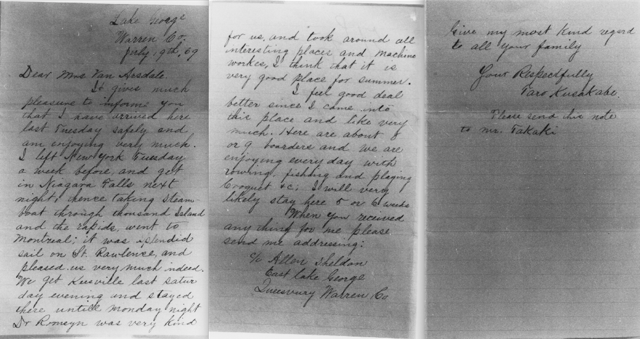 Lake George
Warren Co.
July, 9th, 69
Dear Mrs Van Arsdale.
It gives much
pleasure to inform you
that I have arrived here
last Tuesday safely and
am enjoying very much.
I left New York Tuesday
a week before, and got
in Niagara Falls next
night, thence taking steam-
boat through thousand Island
and the rapids, went to
Montreal; it was splendid
sail on St. Rawlence, and
pleased us very much indeed.
We get Keesville last satur
day evening and stayed
there untill monday night
Dr Romeyn was very kind
for us, and took around all
interesting places and machine
workes, I think that it is
very good place for summer.
I feel good deal
better since I came into
this place and like very
much. Here are about 8
or 9 boarders and we are
enjoying every day with
rowing, fishing and playing
Croquet &c; I will very
likely stay here 5 or 6 weeks
When you received
any third for me please
send me addressing;
c/o Allen Sheldon
East Lake George
Queensbury Warren Co
Give my most kind regard
to all your family
Your Respectfully
Taro Kusakabe.
Please send this note
to mr. Takaki